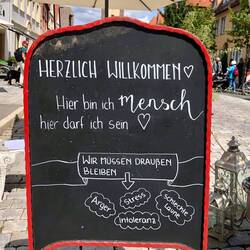 HERZLICH WILLKOMMEN♡
Hier bin ich Mensch
hier darf ich sein ♡
WIR MÜSSEN DRAUẞEN
BLEIBEN
Ärger
Stress
schlechte
Laune
intoleranz